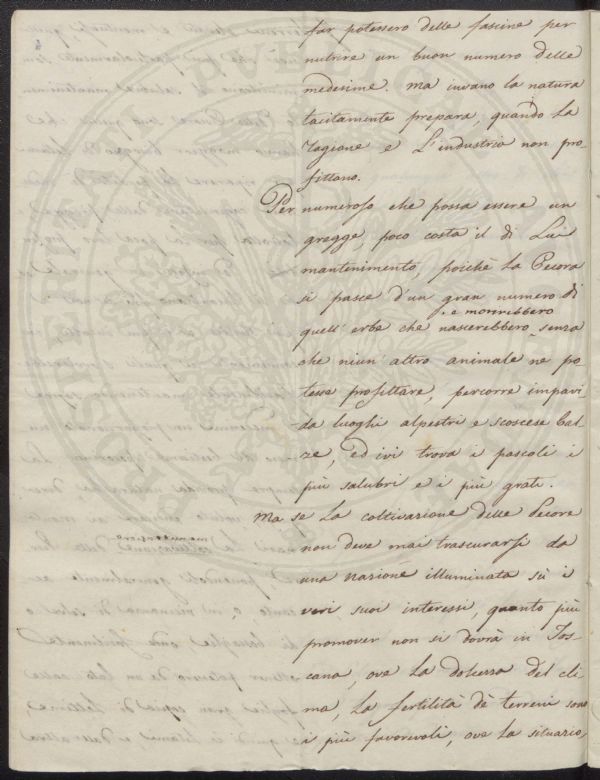 far potessero delle fascine per
nutrire un buon numero delle
medesime. ma invano la natura
tacitamente prepara, quando La
ragione e L'industria non pro-
fittano.
Per numeroso che possa essere un
gregge, poco costa il di Lui
mantenimento, poichè La Pecora
si pasce d'un gran numero di
e morirebbero
quell'erbe che nascerebbero senza
che niun' altro animale ne po-
tesse profittare, percorre impavi-
da luoghi alpestri e scoscese bal-
ze, ed ivi trova i pascoli i
più salubri e i più grati.
Ma se La coltivazione delle Pecore
non deve mai trascurarsi da
una nazione illuminata sù i
veri suoi interessi, quanto più
promover non si dovrà in Tos-
cana, ove La dolcezza del cli-
ma, La fertilità dè terreni sono
i più favorevoli, ove La situazio,